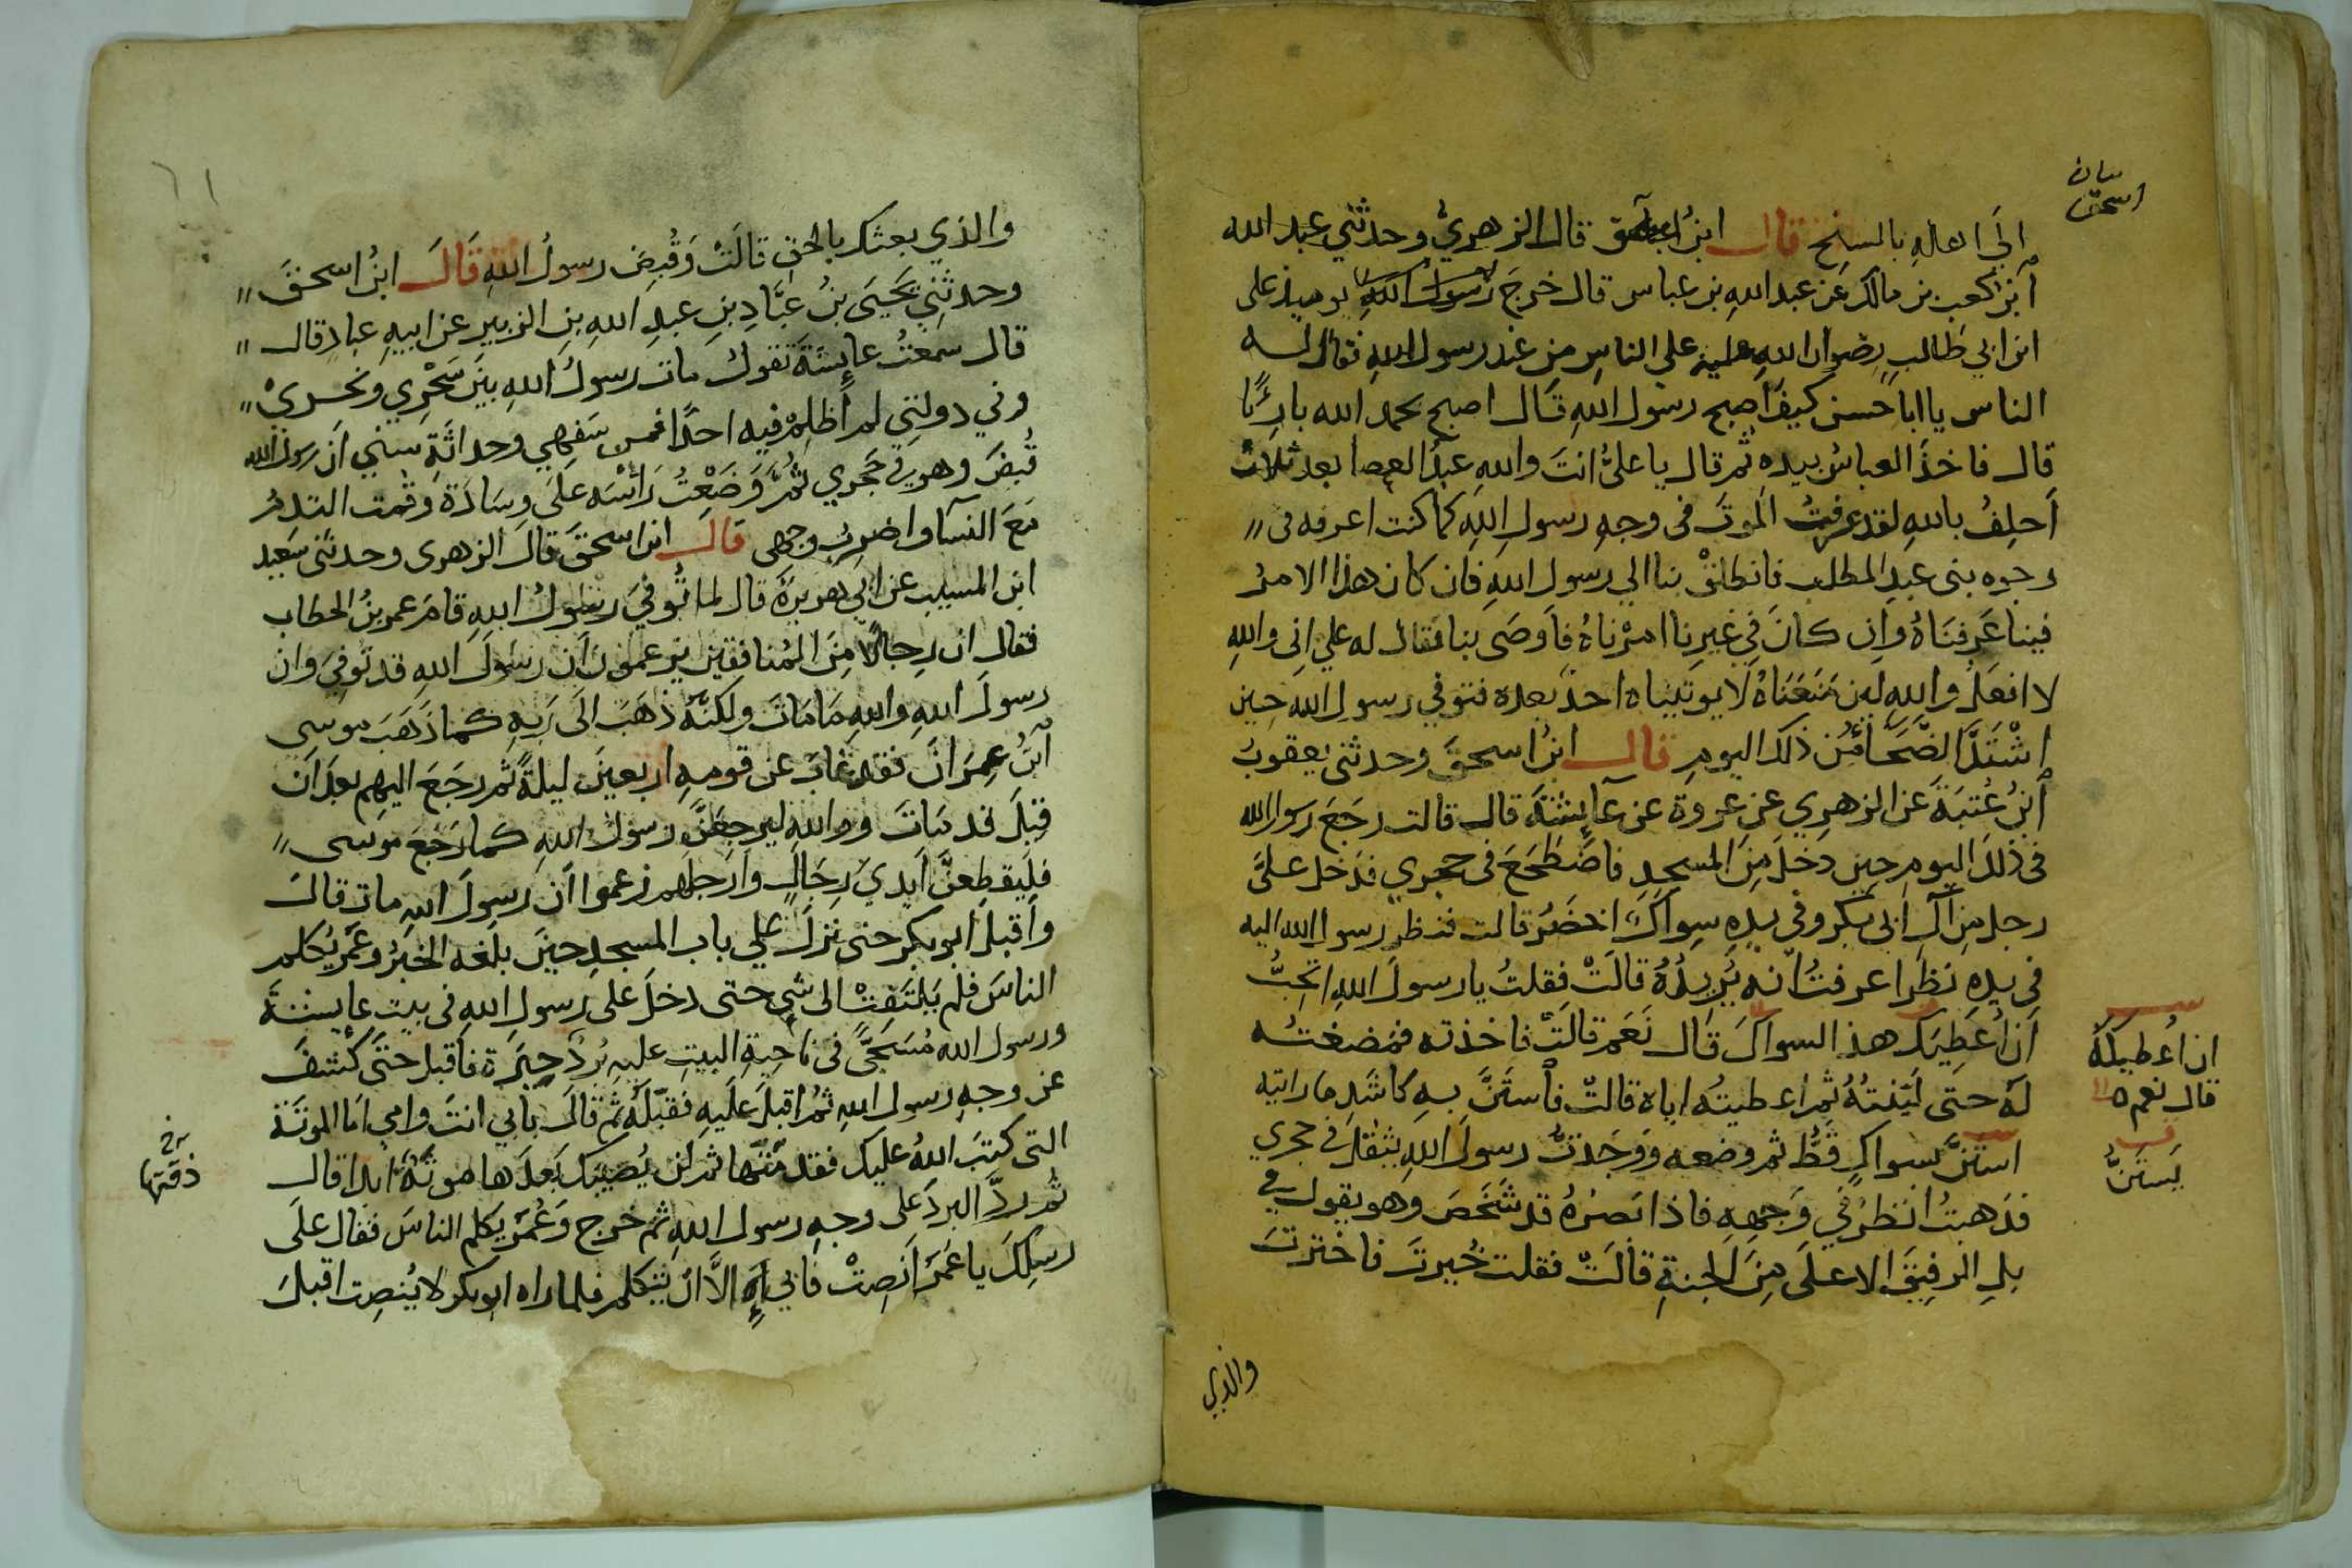 الى اهله بالسنح قال ابن اسحق قال الزهري وحدثني عبد الله
ابن كعب بن مالك عن عبد الله بن عباس قال خرج يوميذ على
ابن ابي طالب رضوان الله عليه على الناس من عند رسول الله فقال له
الناس يا ابا حسن كيف اصبح رسول الله قال اصبح بحمد الله بارئا
قال فاخذ العباس بيده ثم قال يا على انت والله عبد العصا بعد ثلاث
احلف بالله لقد عرفت الموت فى وجه رسول الله كما كنت اعرفه فى
وجوه بنى عبد المطلب فانطلق بنا الي رسول الله فان كان هذا الامر
فينا عرفناه وان كان في غيرنا امرناه فاوصى بنا فقال له علي انى والله
لا افعل والله لين منعناه لا يوتيناه احد بعده فتوفي رسول الله حين
اشتد الضحا من ذلك اليوم قال ابن اسحق وحدثنى يعقوب
ابن عتبة عن الزهري عن عروة عن عايشة قال قالت رجع رسول الله
فى ذلك اليوم حين دخل من المسجد فاضطجع فى حجري فدخل على
رجل من آل ابى بكر وفى يده سواك اخضر قالت فنظر رسول الله اليه
في يده نظرا عرفت انه يريده قالت فقلت يا رسول الله اتحب
ان اعطيك هذ السواك قال نعم قالت فاخذته فمضغته
له حتى لينته ثم اعطيته اياه قالت فاستن به كاشد ما رايته
استن بسواك قط ثم وضعه ووجدت رسول الله يثقل في حجري
فذهبت انظر في وجهه فاذا بصره قد شخص وهو يقول
بل الرفيق الاعلى من الجنة قالت فقلت خيرت فاخترت
اسحق
ان اعطيكه
قال نعم
يستن
والذي
والذي بعثك بالحق قالت وقبض رسول الله قال ابن اسحق
وحدثني يحيى بن عباد بن عبد الله بن الزبير عن ابيه عباد قال
قال سمعت عايشة تقول مات رسول الله بين سحري ونحري
وفي دولتي لم اظلم فيه احدا فمن سفهي وحداثة سني ان رسول الله
قبض وهو في حجري ثم وضعت راسه على وسادة وقمت التدم
مع النسآ واضرب وجهى قال ابن اسحق قال الزهرى وحدثنى سعيد
ابن المسيب عن ابي هريرة قال لما توفي رسول الله قام عمر بن الخطاب
فقال ان رجالا من المنافقين يزعمون ان رسول الله قد توفي وان
رسول الله والله ما مات ولكنه ذهب الى ربه كما ذهب موسى
ابن عمران فقد غاب عن قومه اربعين ليلة ثم رجع اليهم بعد ان
قيل قد مات ووالله ليرجعن رسول الله كما رجع موسى
فليقطعن ايدي رجال وارجلهم زعموا ان رسول الله مات قال
واقبل ابو بكر حتى نزل علي باب المسجد حين بلغه الخبر وعمر يكلم
الناس فلم يلتفت الى شي حتى دخل على رسول الله فى بيت عايشة
ورسول الله مسجى فى ناحية البيت عليه برد حبرة فاقبل حتى كشف
عن وجه رسول الله ثم اقبل عليه فقبله ثم قال بابي انت وامي اما الموتة
التى كتب الله عليك فقد متها ثم لن يصيبك بعدها موتة ابدا قال
ثم رد البرد على وجه رسول الله ثم خرج وعمر يكلم الناس فقال على
رسلك يا عمر انصت فابي الا ان يتكلم فلما راه ابو بكر لا ينصت اقبل
ذقتها
٦١